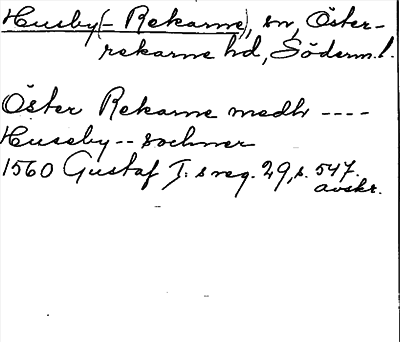 Husby(-Rekarne), sn, Öster-
rekarne hd, Söderm.l.
Öster Rekarne medh ----
Huseby -- sochner
1560 Gustaf I:s reg. 29, s. 547.
avskr.